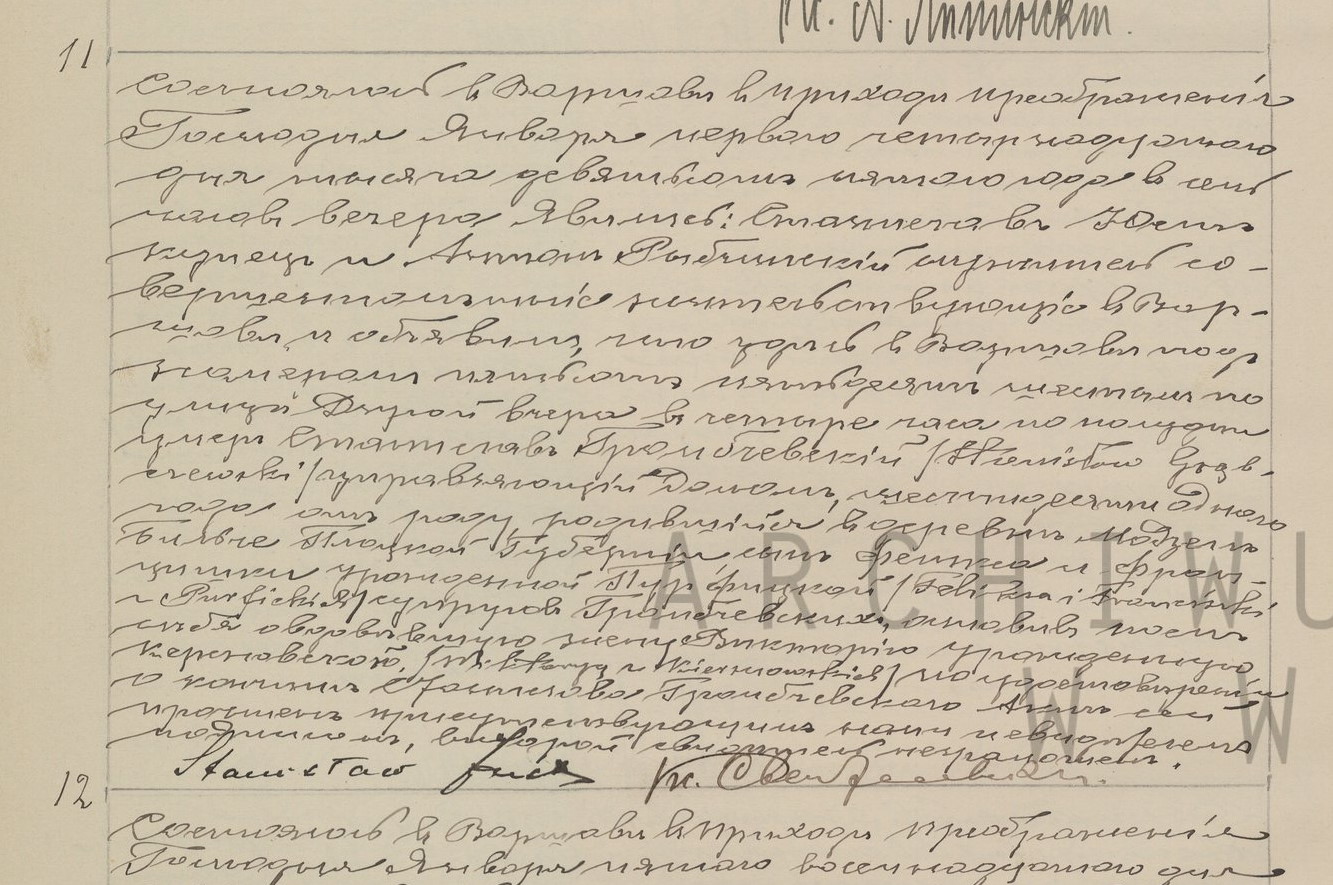 Кс. А.
11
Состоялось в Варшаве в приходе преображения
Господня Января первого четырнадцатого
дня тысяча девятьсот пятого года в семь
часов вечера Явились: Станислав
кузнец и Антон Рыбчинский служитель со-
вершеннолетние жительствующие в Вар-
шаве и объявили, что здесь в Варшаве под
номером пятьсот пятьдесят шестым по
улице Дзурой вчера в четыре часа по полудни
умер Станислав Громбчевский /Stanisław Grąb-
czewski/ управляющий Домом, шестидесяти одного
года от роду, родившийся в деревне
Плоцкой Губернии сын Феликса и Фран-
цишки урожденной Пурфицкой /Feliksa i Franciszki
z Purfickich/ супругов Громбчевских, оставив после
себя овдовевшую жену Викторию урожденную
Керсновскую, /Wiktoryą z Kiersnowskich/ по удостоверении
о кончине Станислава Громбчевского Акт сей
прочитен присутствующим нами и свидетелем
подписан, второй свидетель неграмотен.
Stanisław Кс.
12
Состоялось в Варшаве в приходе преображения
Господня Января пятого восемнадцатого дня
ARCHIWU
W W